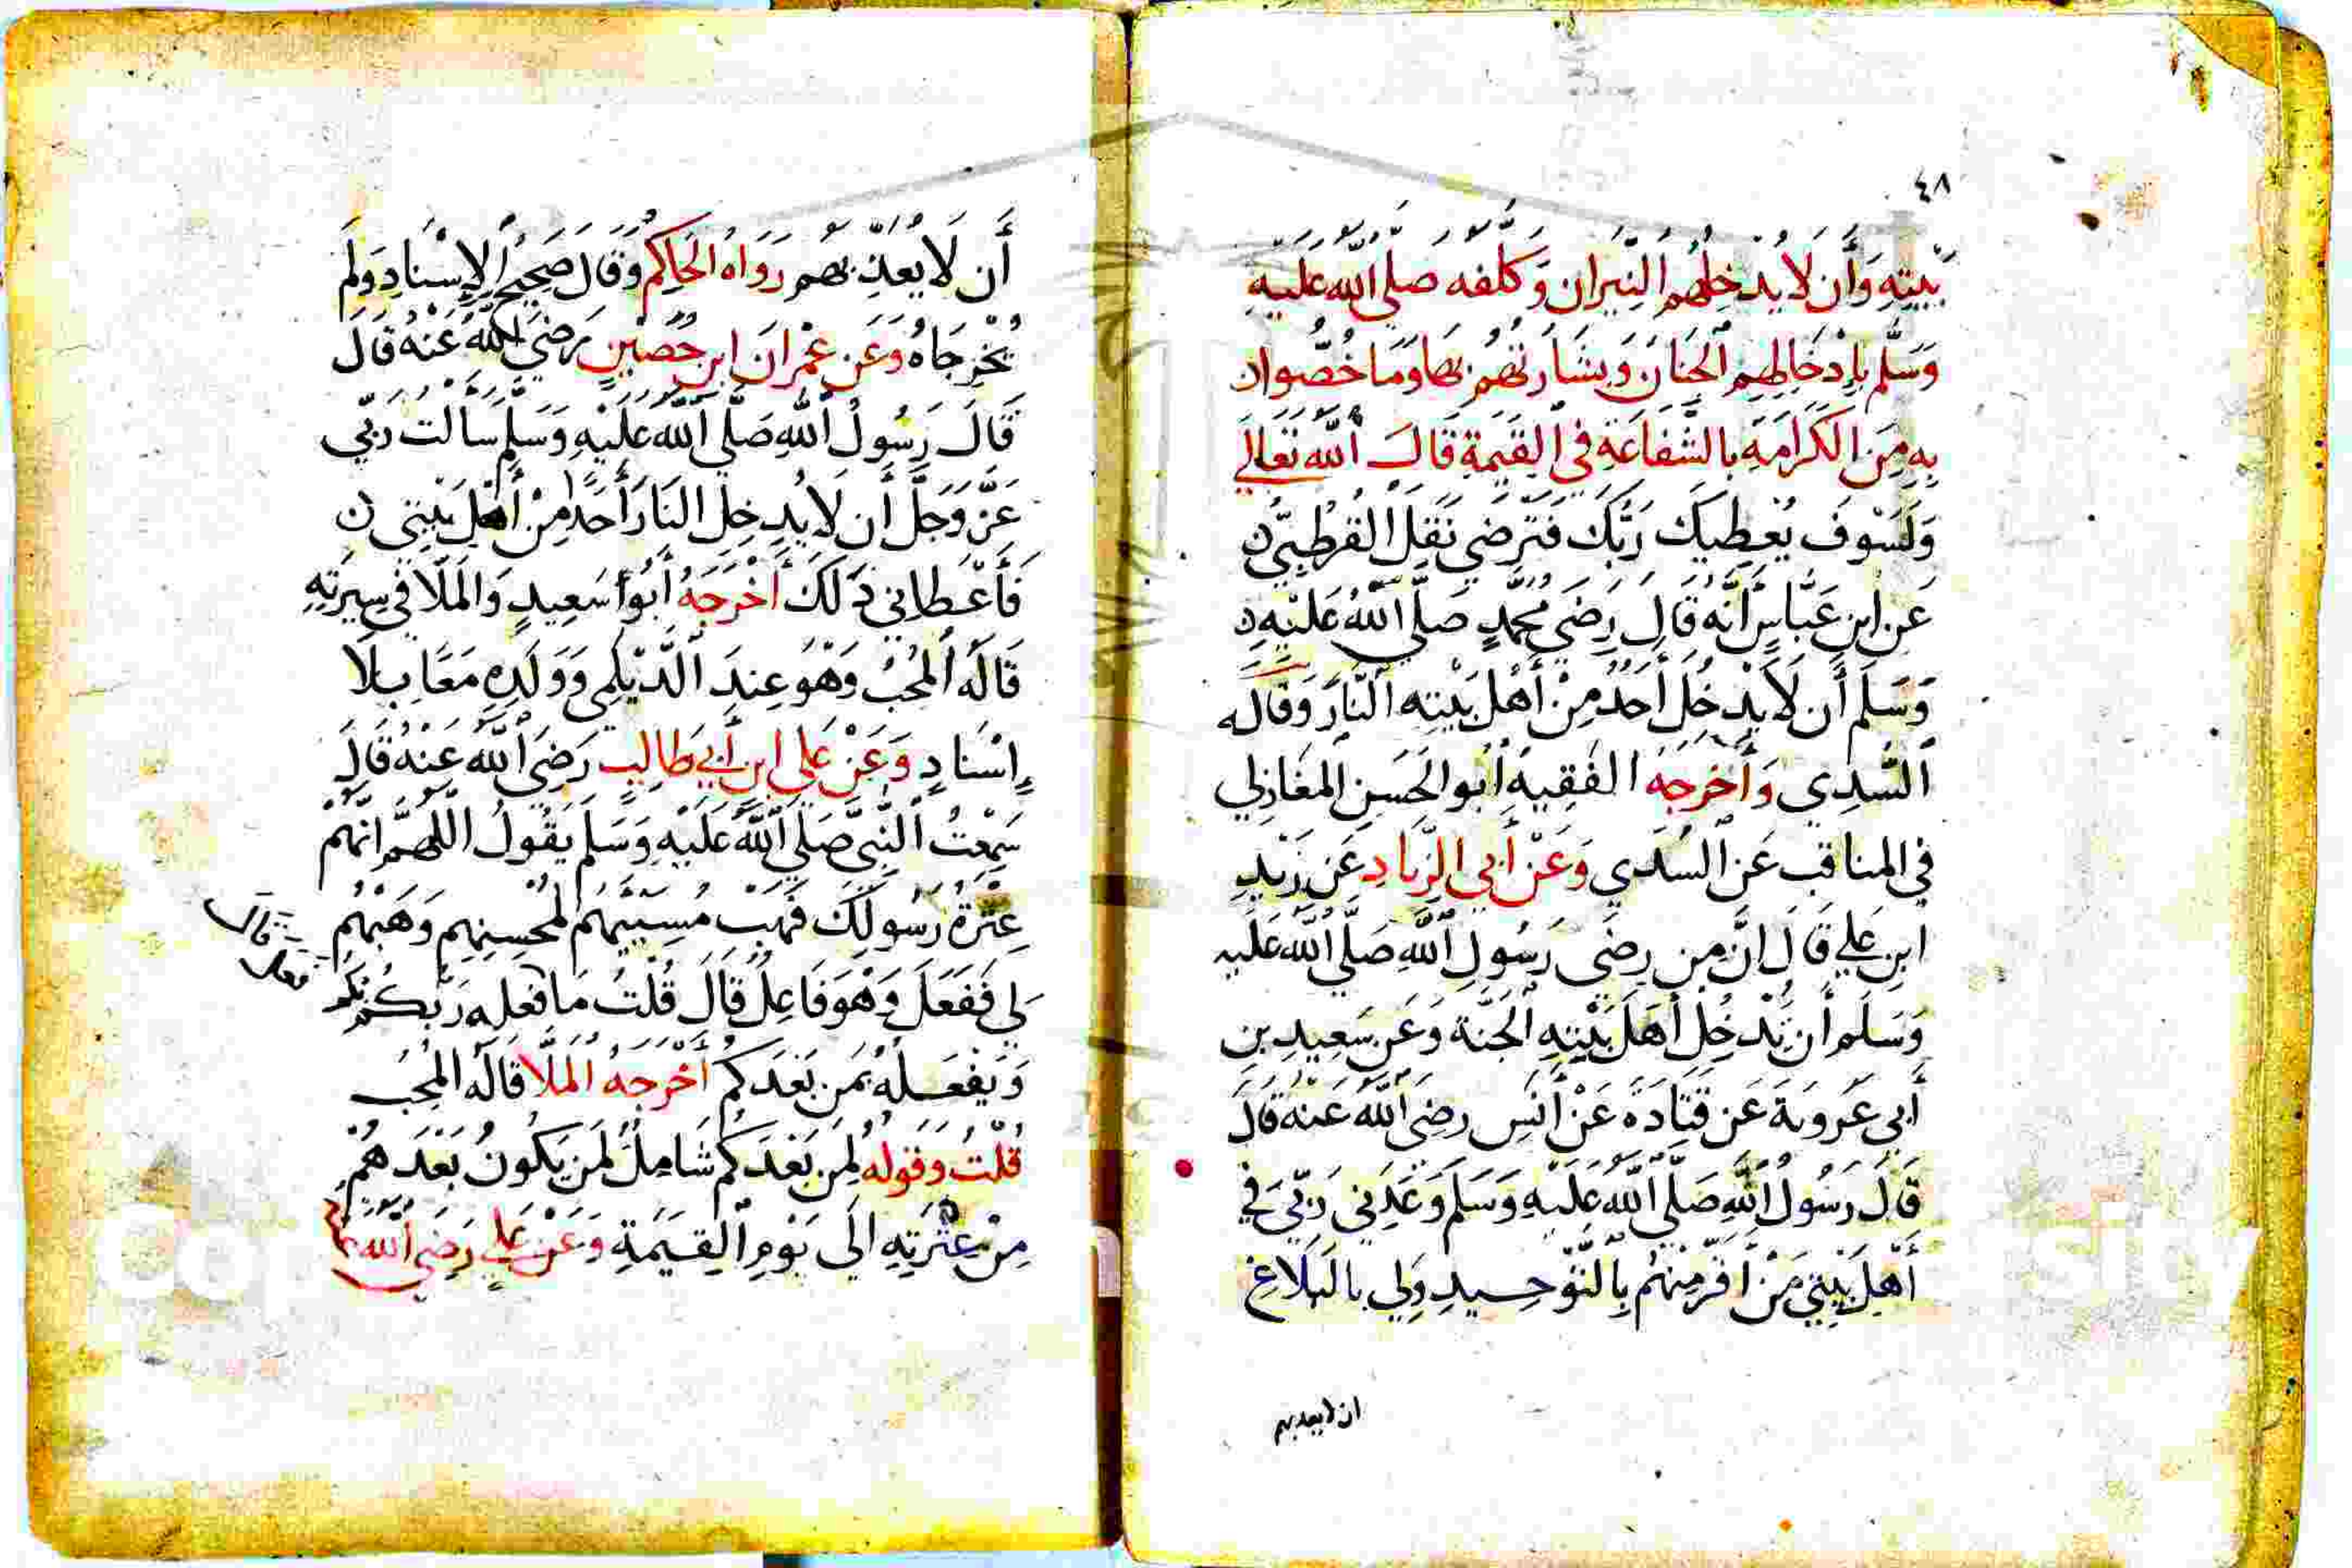 ٤٨
بيته وأن لا يدخلهم النيران وكلفه صلى الله عليه
وسلم بإدخالهم الجنان وبشارتهم بها وما خصوا ن
به من الكرامة بالشفاعة في القيمة قال الله تعالى
ولسوف يعطيك ربك فترضى نقل القرطبي ن
عن ابن عباس أنه قال رضى محمد صلى الله عليه ن
وسلم أن لا يدخل أحد من أهل بيته النار وقاله
السدي وأخرجه الفقيه أبو الحسن المغازلي
في المناقب عن السدي وعن أبي الزناد عن زيد
ابن علي قال ان من رضى رسول الله صلى الله عليه
وسلم أن يدخل أهل بيته الجنة وعن سعيد بن
أبي عروبة عن قتادة عن أنس رضي الله عنه قال
قال رسول الله صلى الله عليه وسلم وعدني ربي في
أهل بيتي من أقر منهم بالتوحيد ولي بالبلاغ
ان لا يعدبهم
أن لا يعذبهم رواه الحاكم وقال صحيح الإسناد ولم
يخرجاه وعن عمران ابن حصين رضي الله عنه قال
قال رسول الله صلى الله عليه وسلم سالت ربي
عز وجل أن لا يدخل النار أحدا من أهل بيتي ن
فأعطاني ذلك أخرجه أبو سعيد والملا في سيرته
قاله المحب وهو عند الديلمي وولده معا بلا
إسناد وعن علي ابن أبي طالب رضي الله عنه قال
سمعت النبي صلى الله عليه وسلم يقول اللهم انهم
عترة رسولك فهب مسيئهم لمحسنهم وهبهم
لي ففعل وهو فاعل قال قلت ما فعله ربكم بكم
قال
فعله
ويفعله بمن بعدكم أخرجه الملا قاله المحب
قلت وقوله لمن بعدكم شامل لمن يكون بعدهم
من عترته الى يوم القيمة وعن علي رضي الله عنه